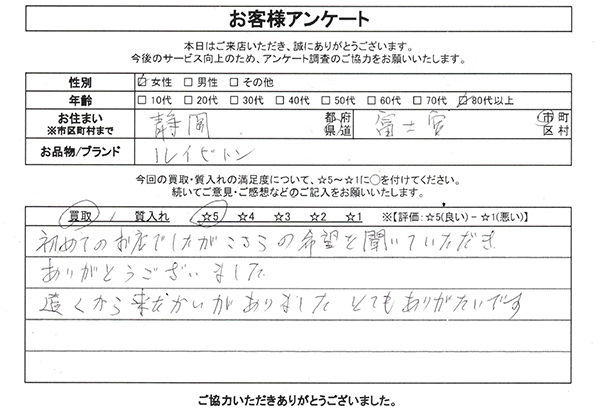 お客様アンケート
本日はご来店いただき、誠にありがとうございます。
今後のサービス向上のため、アンケート調査のご協力をお願いいたします。
性別 ☑ 女性 □ 男性 □ その他
年齢 □ 10代 □ 20代 □ 30代 □ 40代 □ 50代 □ 60代 □ 70代 ☑ 80代以上
お住まい 静岡 都府 富士宮 市町
※市区町村まで 県道 区村
お品物/ブランド ルイビトン
今回の買取・質入れの満足度について、☆5～☆1に○を付けてください。
続いてご意見・ご感想などのご記入をお願いいたします。
買取 / 質入れ ☆5 ☆4 ☆3 ☆2 ☆1 ※【評価:☆5(良い)－☆1(悪い)】
初めてのお店でしたがこちらの希望を聞いていただき
ありがとうございました
遠くから来たかいがありました とてもありがたいです
ご協力いただきありがとうございました。